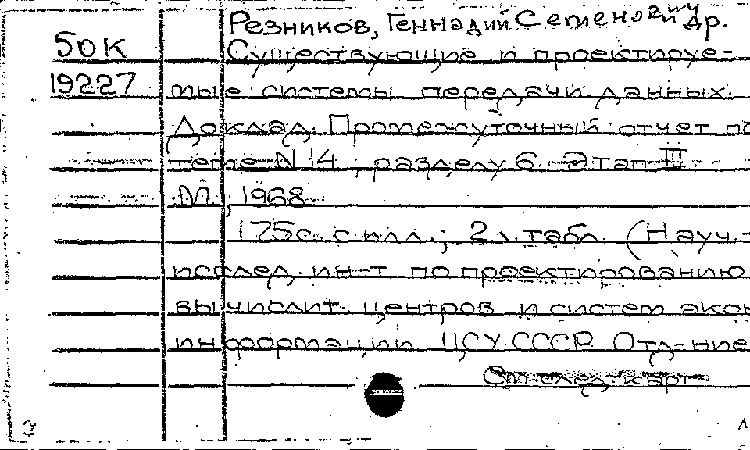 Резников, Геннадий Семенович и др.
50К Существующие и проектируе-
19227 мые системы передачи данных.
Доклад. Промежуточный отчет по
теме N 14, разделу 6. Этап III
М., 1968
175с. с илл.; 2 л. табл. (Науч.-
исслед. ин-т по проектированию
вычислит. центров и систем экон
информации ЦСУ СССР. Отд-ние
См. след. карт